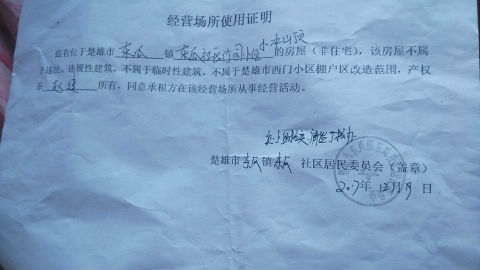 经营场所使用证明
兹有位于楚雄市 东瓜 镇 东瓜社区 小组 的房屋（非住宅），该房屋不属
于违法、违规性建筑，不属于临时性建筑，不属于楚雄市西门小区棚户区改造范围，产权
系 所有，同意承租方在该经营场所从事经营活动。
楚雄市 东瓜 镇 东瓜 社区居民委员会（盖章）
2017年 12月 日